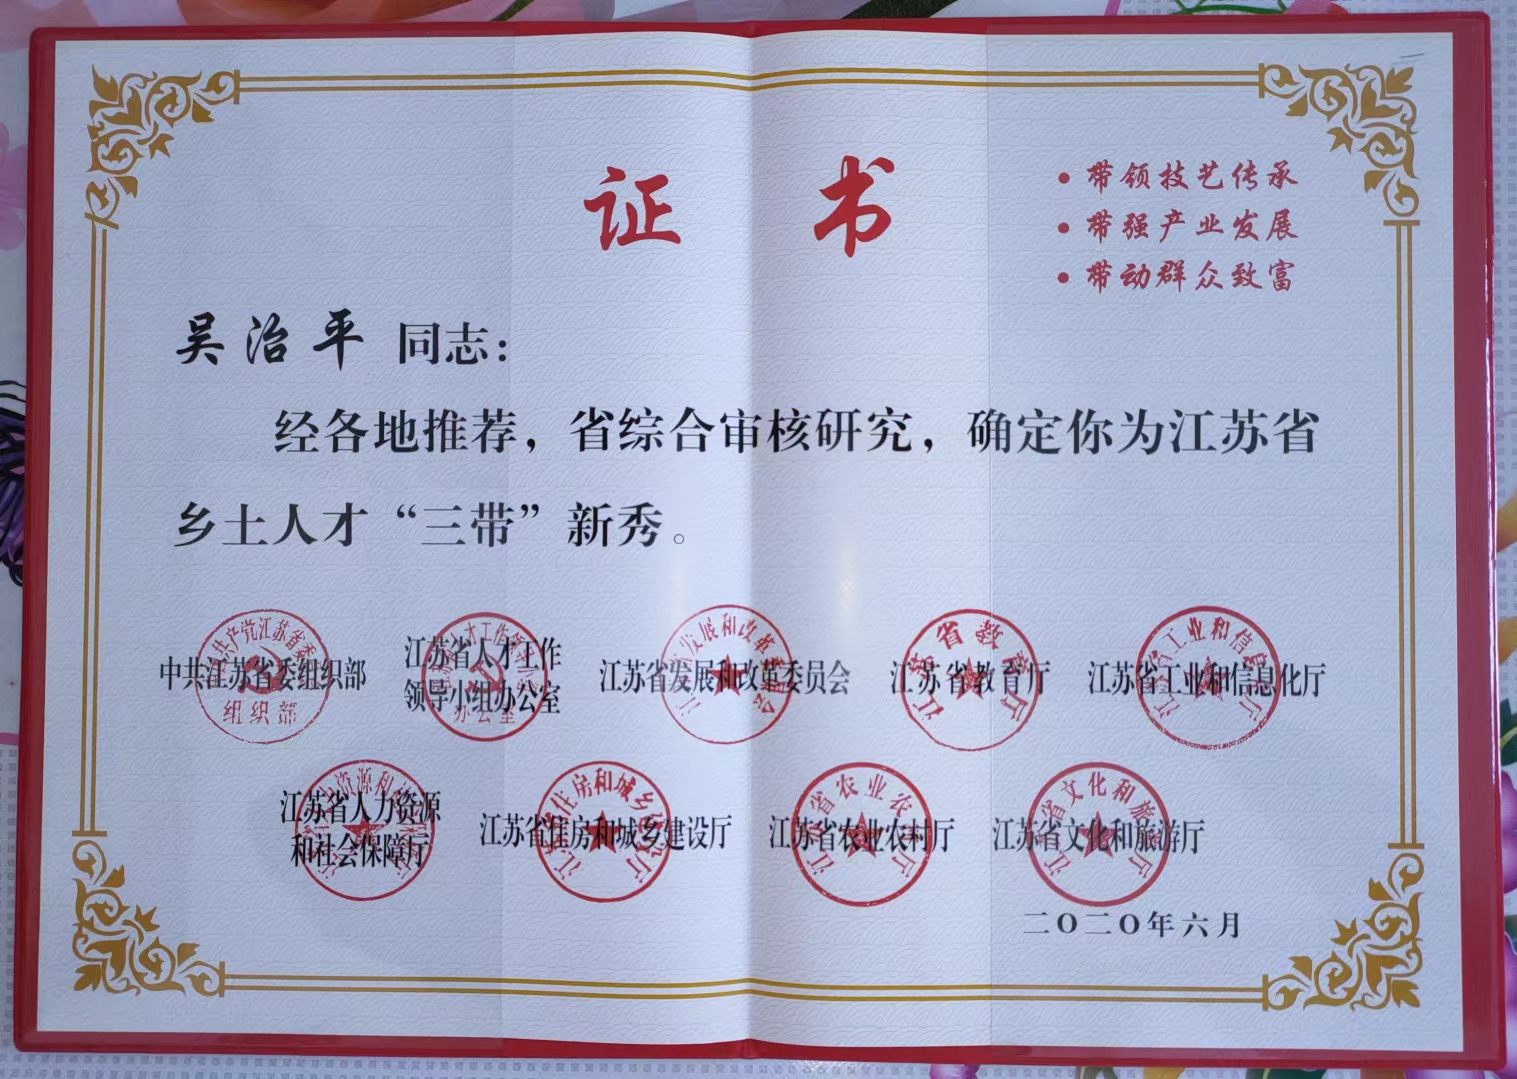 证 书
• 带领技艺传承
• 带强产业发展
• 带动群众致富
吴治平 同志：
经各地推荐，省综合审核研究，确定你为江苏省
乡土人才“三带”新秀。
中共江苏省委组织部
江苏省人才工作
领导小组办公室
江苏省发展和改革委员会
江苏省教育厅
江苏省工业和信息化厅
组织部
办公室
江苏省人力资源
和社会保障厅
江苏省住房和城乡建设厅
江苏省农业农村厅
江苏省文化和旅游厅
二〇二〇年六月